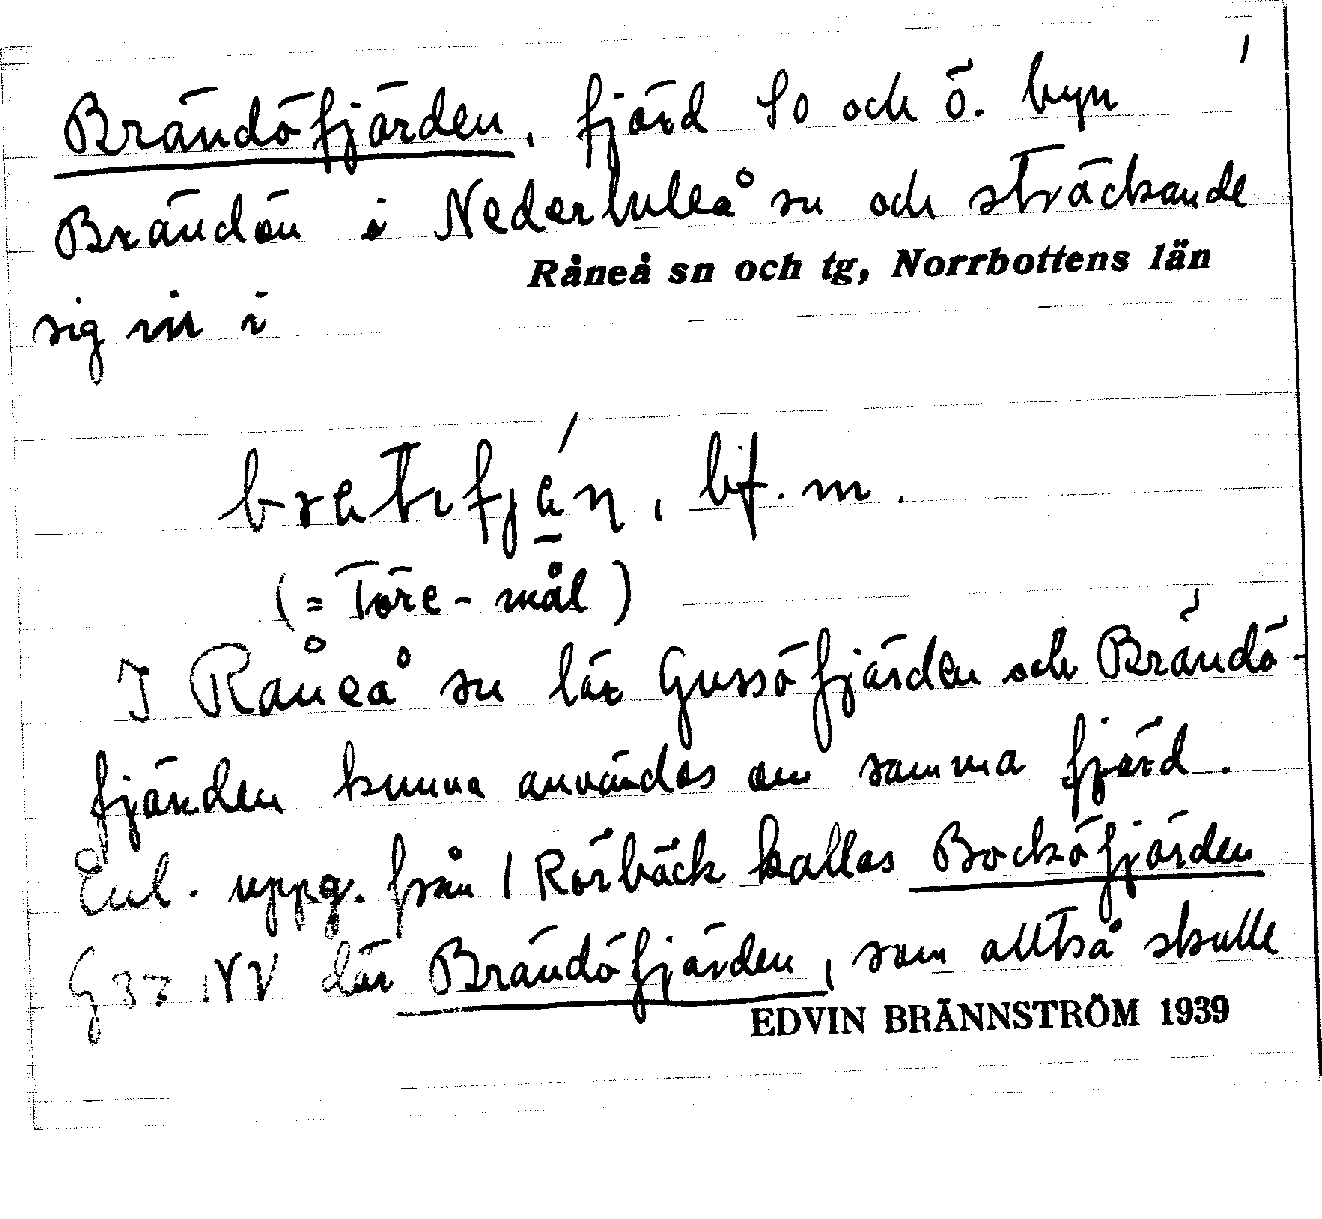 1
Brändöfjärden, fjärd So och Ö. byn
Brändön i Nederluleå sn och sträckande
Råneå sn och tg, Norrbottens län
sig in i
bf. m.
(= Töre-mål)
I Råneå sn lär Gussöfjärden och Brändö-
fjärden kunna användas om samma fjärd.
Enl. uppg. från 1 Rörbäck kallas Bocköfjärden
G 37 NV där Brändöfjärden, som alltså skulle
EDVIN BRÄNNSTRÖM 1939